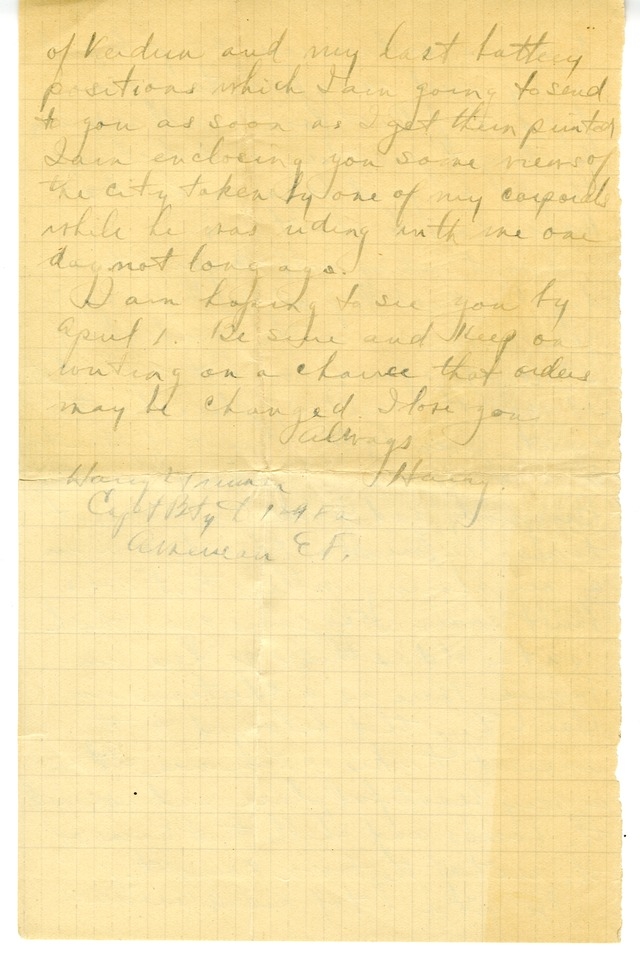 of Verdun and my last battery
positions which I am going to send
to you as soon as I get them printed
I am enclosing you some views of
the city taken by one of my corporals
while he was riding with me one
day not long ago.
I am hoping to see you by
April 1. Be sure and keep on
writing on a chance that orders
may be changed. I love you
Always
Harry.
Harry S Truman
Capt Bty D 129 F.A.
American E F.